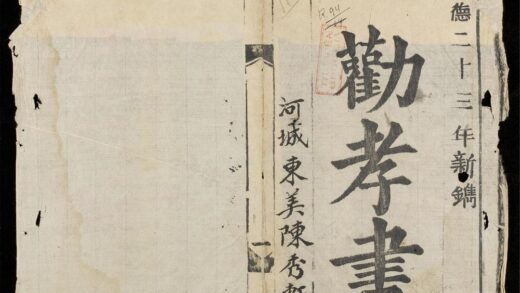 德二十三年新鐫
勸孝書
河城東美陳秀
一
R.94